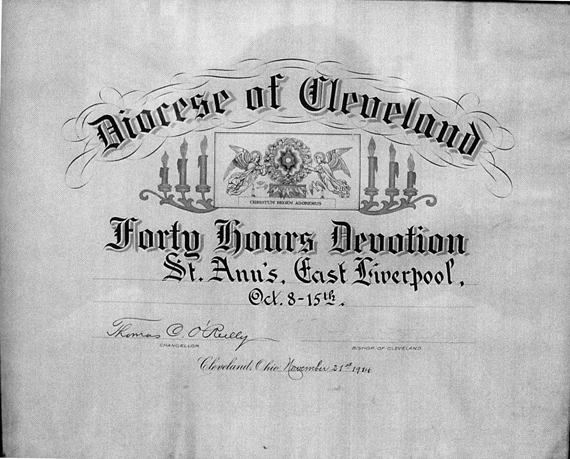 Diocese of Cleveland
CHRISTUM REGEM ADOREMUS
Forty Hours Devotion
St. Ann's, East Liverpool,
Oct. 8-15th.
Thomas C. O'Reilly
CHANCELLOR
BISHOP OF CLEVELAND
Cleveland, Ohio November 21st 1914